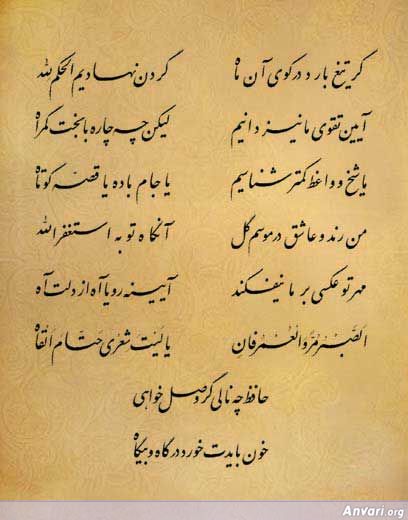 گر تیغ بارد در کوی آن ماه گردن نهادیم الحکم لله
آیین تقوی ما نیز دانیم لیکن چه چاره با بخت گمراه
ما شیخ و واعظ کمتر شناسیم یا جام باده یا قصه کوتاه
من رند و عاشق در موسم گل آنگاه توبه استغفرالله
مهر تو عکسی بر ما نیفکند آیینه رویا آه از دلت آه
الصَّبْرُ مُرٌّ وَالْعُمْرُ فانٍ یا لَیْتَ شِعْری حَتّامَ اَلْقاه
حافظ چه نالی گر وصل خواهی
خون بایدت خورد در گاه و بیگاه
Anvari.org